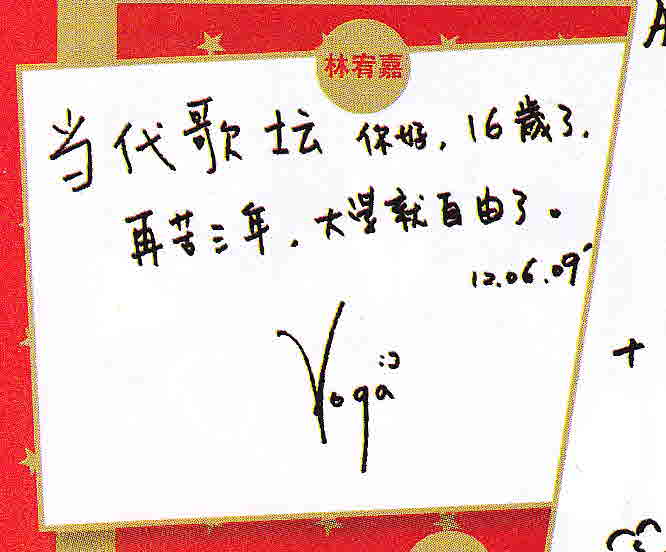 林宥嘉
当代歌坛 你好，16歲了，
再苦三年，大學就自由了。
12.06.09'
Yoga :)
A
+